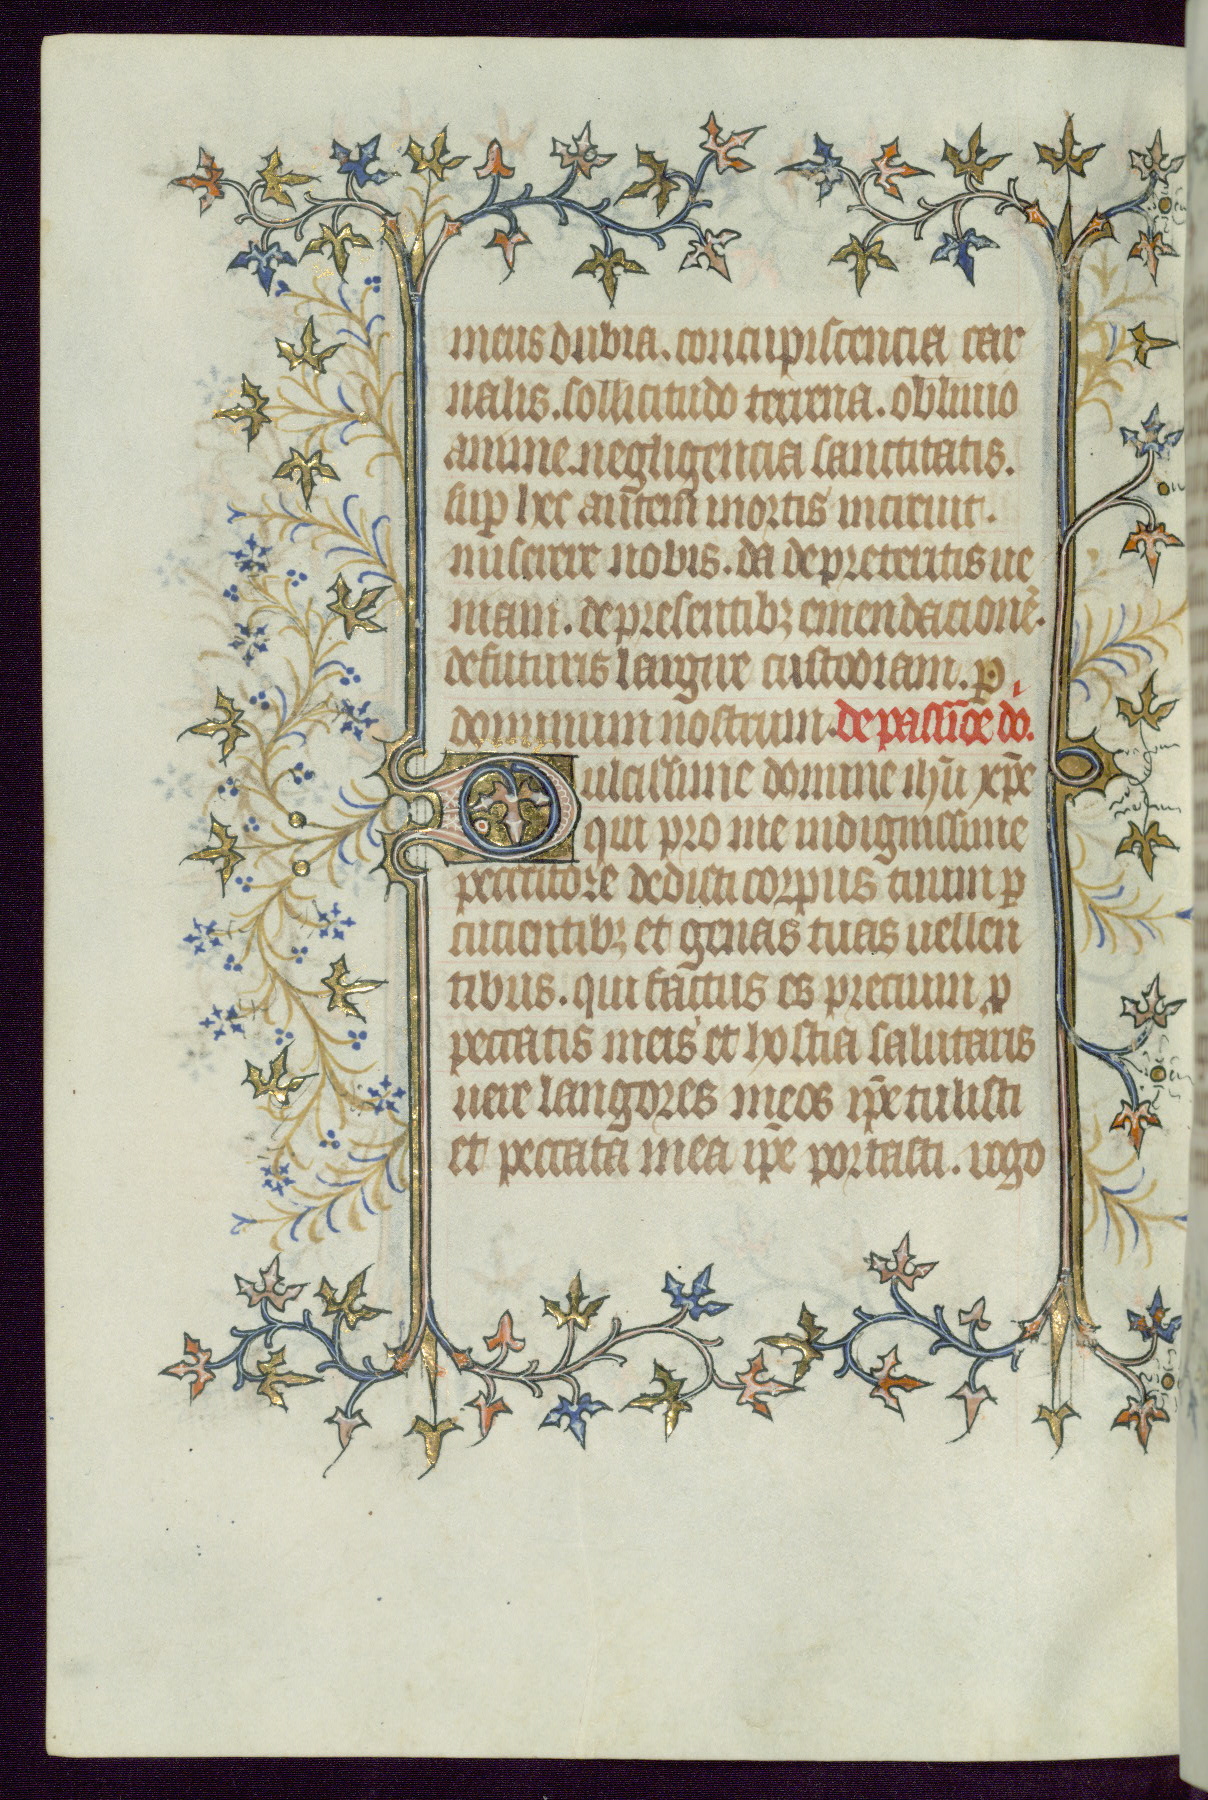 mens dubia. concupiscencia car
nalis. sollicitudo terrena. obliuio
anime. negligencia sanctitatis.
sup hec aūtem mortis incircuit.
miserere nobis. da de preteritis ue
niam. de presentibꝫ emendacionē.
de futuris largire custodiam. p
dominum nostrum. de passiōe do.
Dulcissime domine ihū xp̄e
qui pro me indignissime
peccatore dedisti corpus tuum p
cucientibꝫ et genas tuas uellen
tibus. qui factus es precium p
peccatis meis et hostia salutaris
uere langores meos ip̄e tulisti
et peccata mea ip̄e portasti. rogo